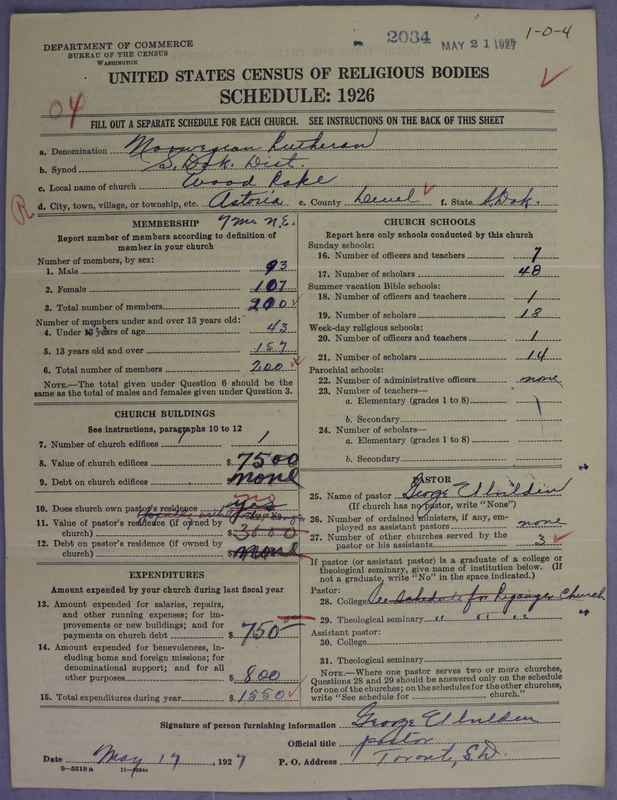 2034 MAY 21 1927 1-0-4
DEPARTMENT OF COMMERCE
BUREAU OF THE CENSUS
WASHINGTON
UNITED STATES CENSUS OF RELIGIOUS BODIES
SCHEDULE: 1926
04
FILL OUT A SEPARATE SCHEDULE FOR EACH CHURCH. SEE INSTRUCTIONS ON THE BACK OF THIS SHEET
a. Denomination Norwegian Lutheran
b. Synod S. Dak. Dist.
c. Local name of church Wood Lake
R d. City, town, village, or township, etc. Astoria e. County Deuel f. State S. Dak.
9 mi. N.E.
MEMBERSHIP
Report number of members according to definition of
member in your church
Number of members, by sex:
1. Male 93
2. Female 107
3. Total number of members 200
Number of members under and over 13 years old:
4. Under 13 years of age 43
5. 13 years old and over 157
6. Total number of members 200
NOTE.—The total given under Question 6 should be the
same as the total of males and females given under Question 3.
CHURCH BUILDINGS
See instructions, paragraphs 10 to 12
7. Number of church edifices 1
8. Value of church edifices $ 7500
9. Debt on church edifices none
10. Does church own pastor's residence yes no
11. Value of pastor's residence (if owned by
church) $ 3000
12. Debt on pastor's residence (if owned by
church) none
EXPENDITURES
Amount expended by your church during last fiscal year
13. Amount expended for salaries, repairs,
and other running expenses; for im-
provements or new buildings; and for
payments on church debt $ 750
14. Amount expended for benevolences, in-
cluding home and foreign missions; for
denominational support; and for all
other purposes $ 800
15. Total expenditures during year $ 1550
CHURCH SCHOOLS
Report here only schools conducted by this church
Sunday schools:
16. Number of officers and teachers 7
17. Number of scholars 48
Summer vacation Bible schools:
18. Number of officers and teachers 1
19. Number of scholars 18
Week-day religious schools:
20. Number of officers and teachers 1
21. Number of scholars 14
Parochial schools:
22. Number of administrative officers none
23. Number of teachers—
a. Elementary (grades 1 to 8)
b. Secondary
24. Number of scholars—
a. Elementary (grades 1 to 8)
b. Secondary
PASTOR
25. Name of pastor George
(If church has no pastor, write "None")
26. Number of ordained ministers, if any, em-
ployed as assistant pastors none
27. Number of other churches served by the
pastor or his assistants 3
If pastor (or assistant pastor) is a graduate of a college or
theological seminary, give name of institution below. (If
not a graduate, write "No" in the space indicated.)
Pastor:
28. College See Schedule for Church
29. Theological seminary " " "
Assistant pastor:
30. College
31. Theological seminary
NOTE.—Where one pastor serves two or more churches,
Questions 28 and 29 should be answered only on the schedule
for one of the churches; on the schedules for the other churches,
write "See schedule for church."
Signature of person furnishing information George
Official title pastor
Date May 17, 1927 P. O. Address Toronto, S.D.
8—5518 a